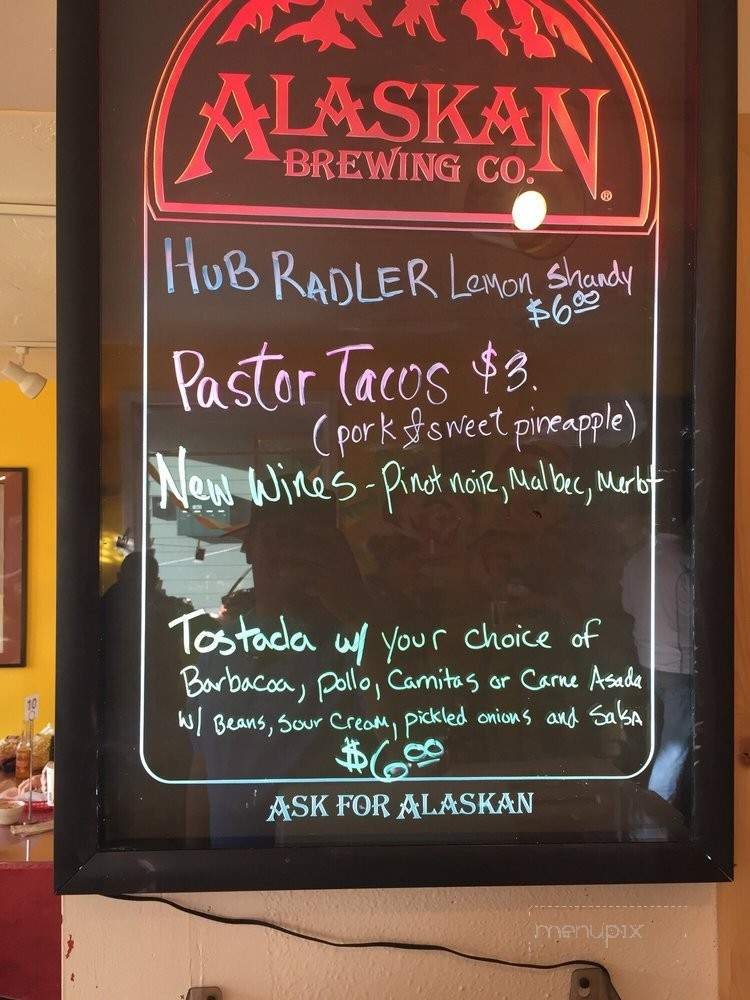 ALASKAN
BREWING CO.®
HUB RADLER Lemon Shandy
$6.00
Pastor Tacos $3.
(pork & sweet pineapple)
New Wines - Pinot noir, Malbec, Merlot
Tostada w/ your choice of
Barbacoa, pollo, Carnitas or Carne Asada
w/ Beans, Sour Cream, pickled onions and Salsa
$6.00
ASK FOR ALASKAN
10
menupix